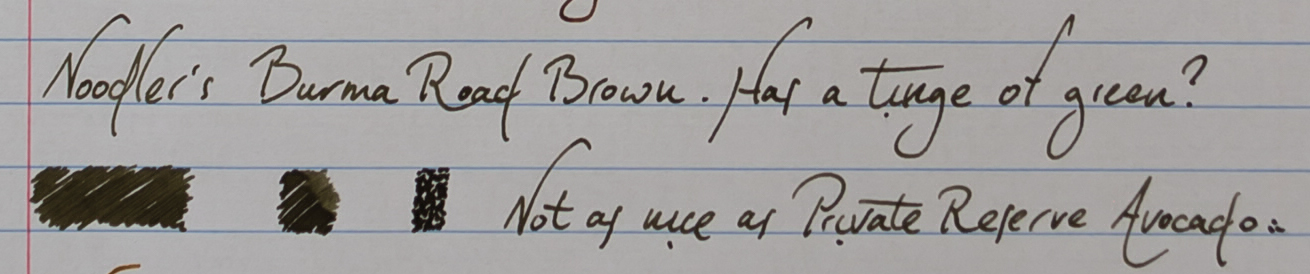 Noodler's Burma Road Brown. Has a tinge of green?
Not as nice as Private Reserve Avocado..